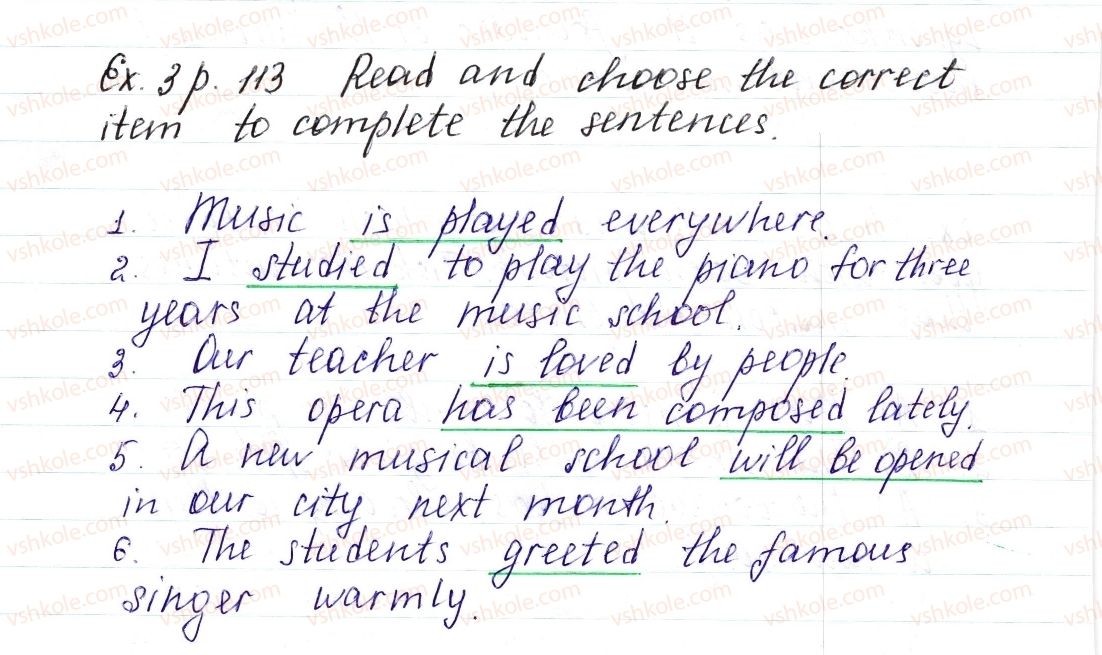 Ex. 3 p. 113 Read and choose the correct
item to complete the sentences.
1. Music is played everywhere.
2. I studied to play the piano for three
years at the music school.
3. Our teacher is loved by people.
4. This opera has been composed lately.
5. A new musical school will be opened
in our city next month.
6. The students greeted the famous
singer warmly.
vshkole.com